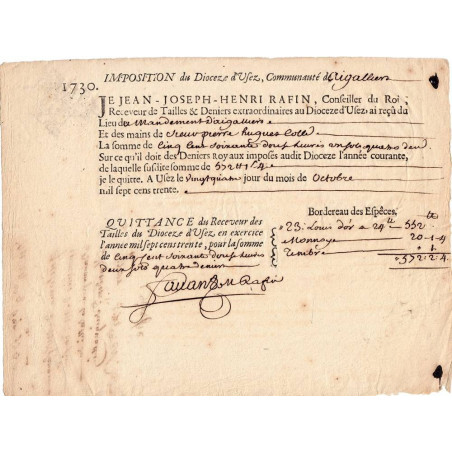 1730.
IMPOSITION du Dioceze d'Usez, Communauté d'aigalliers
JE JEAN-JOSEPH-HENRI RAFIN, Conseiller du Roi,
Receveur de Tailles & Deniers extraordinaires au Dioceze d'Usez, ai reçû du
Lieu de Mandement d'aigaliers
Et des mains de Sieur pierre hugues
La somme de Cinq Cent Soixante douse livres
Sur ce qu'il doit des Deniers Royaux imposés audit Dioceze l'année courante,
de laquelle susdite somme de
je le quitte. A Usez le Vingtquatre jour du mois de Octobre
mil sept cens trente.
Bordereau des Espéces,
QUITTANCE du Receveur des
Tailles du Dioceze d'Usez, en exercice
l'année mil sept cens trente, pour la somme
de Cinq Cent Soixante douse livres
deux sols quatre deniers
23 Louis d'or a 24ᵗᵗ 552
Monnoye 20-1-4
Timbre "-1
572-2-4
Rafin